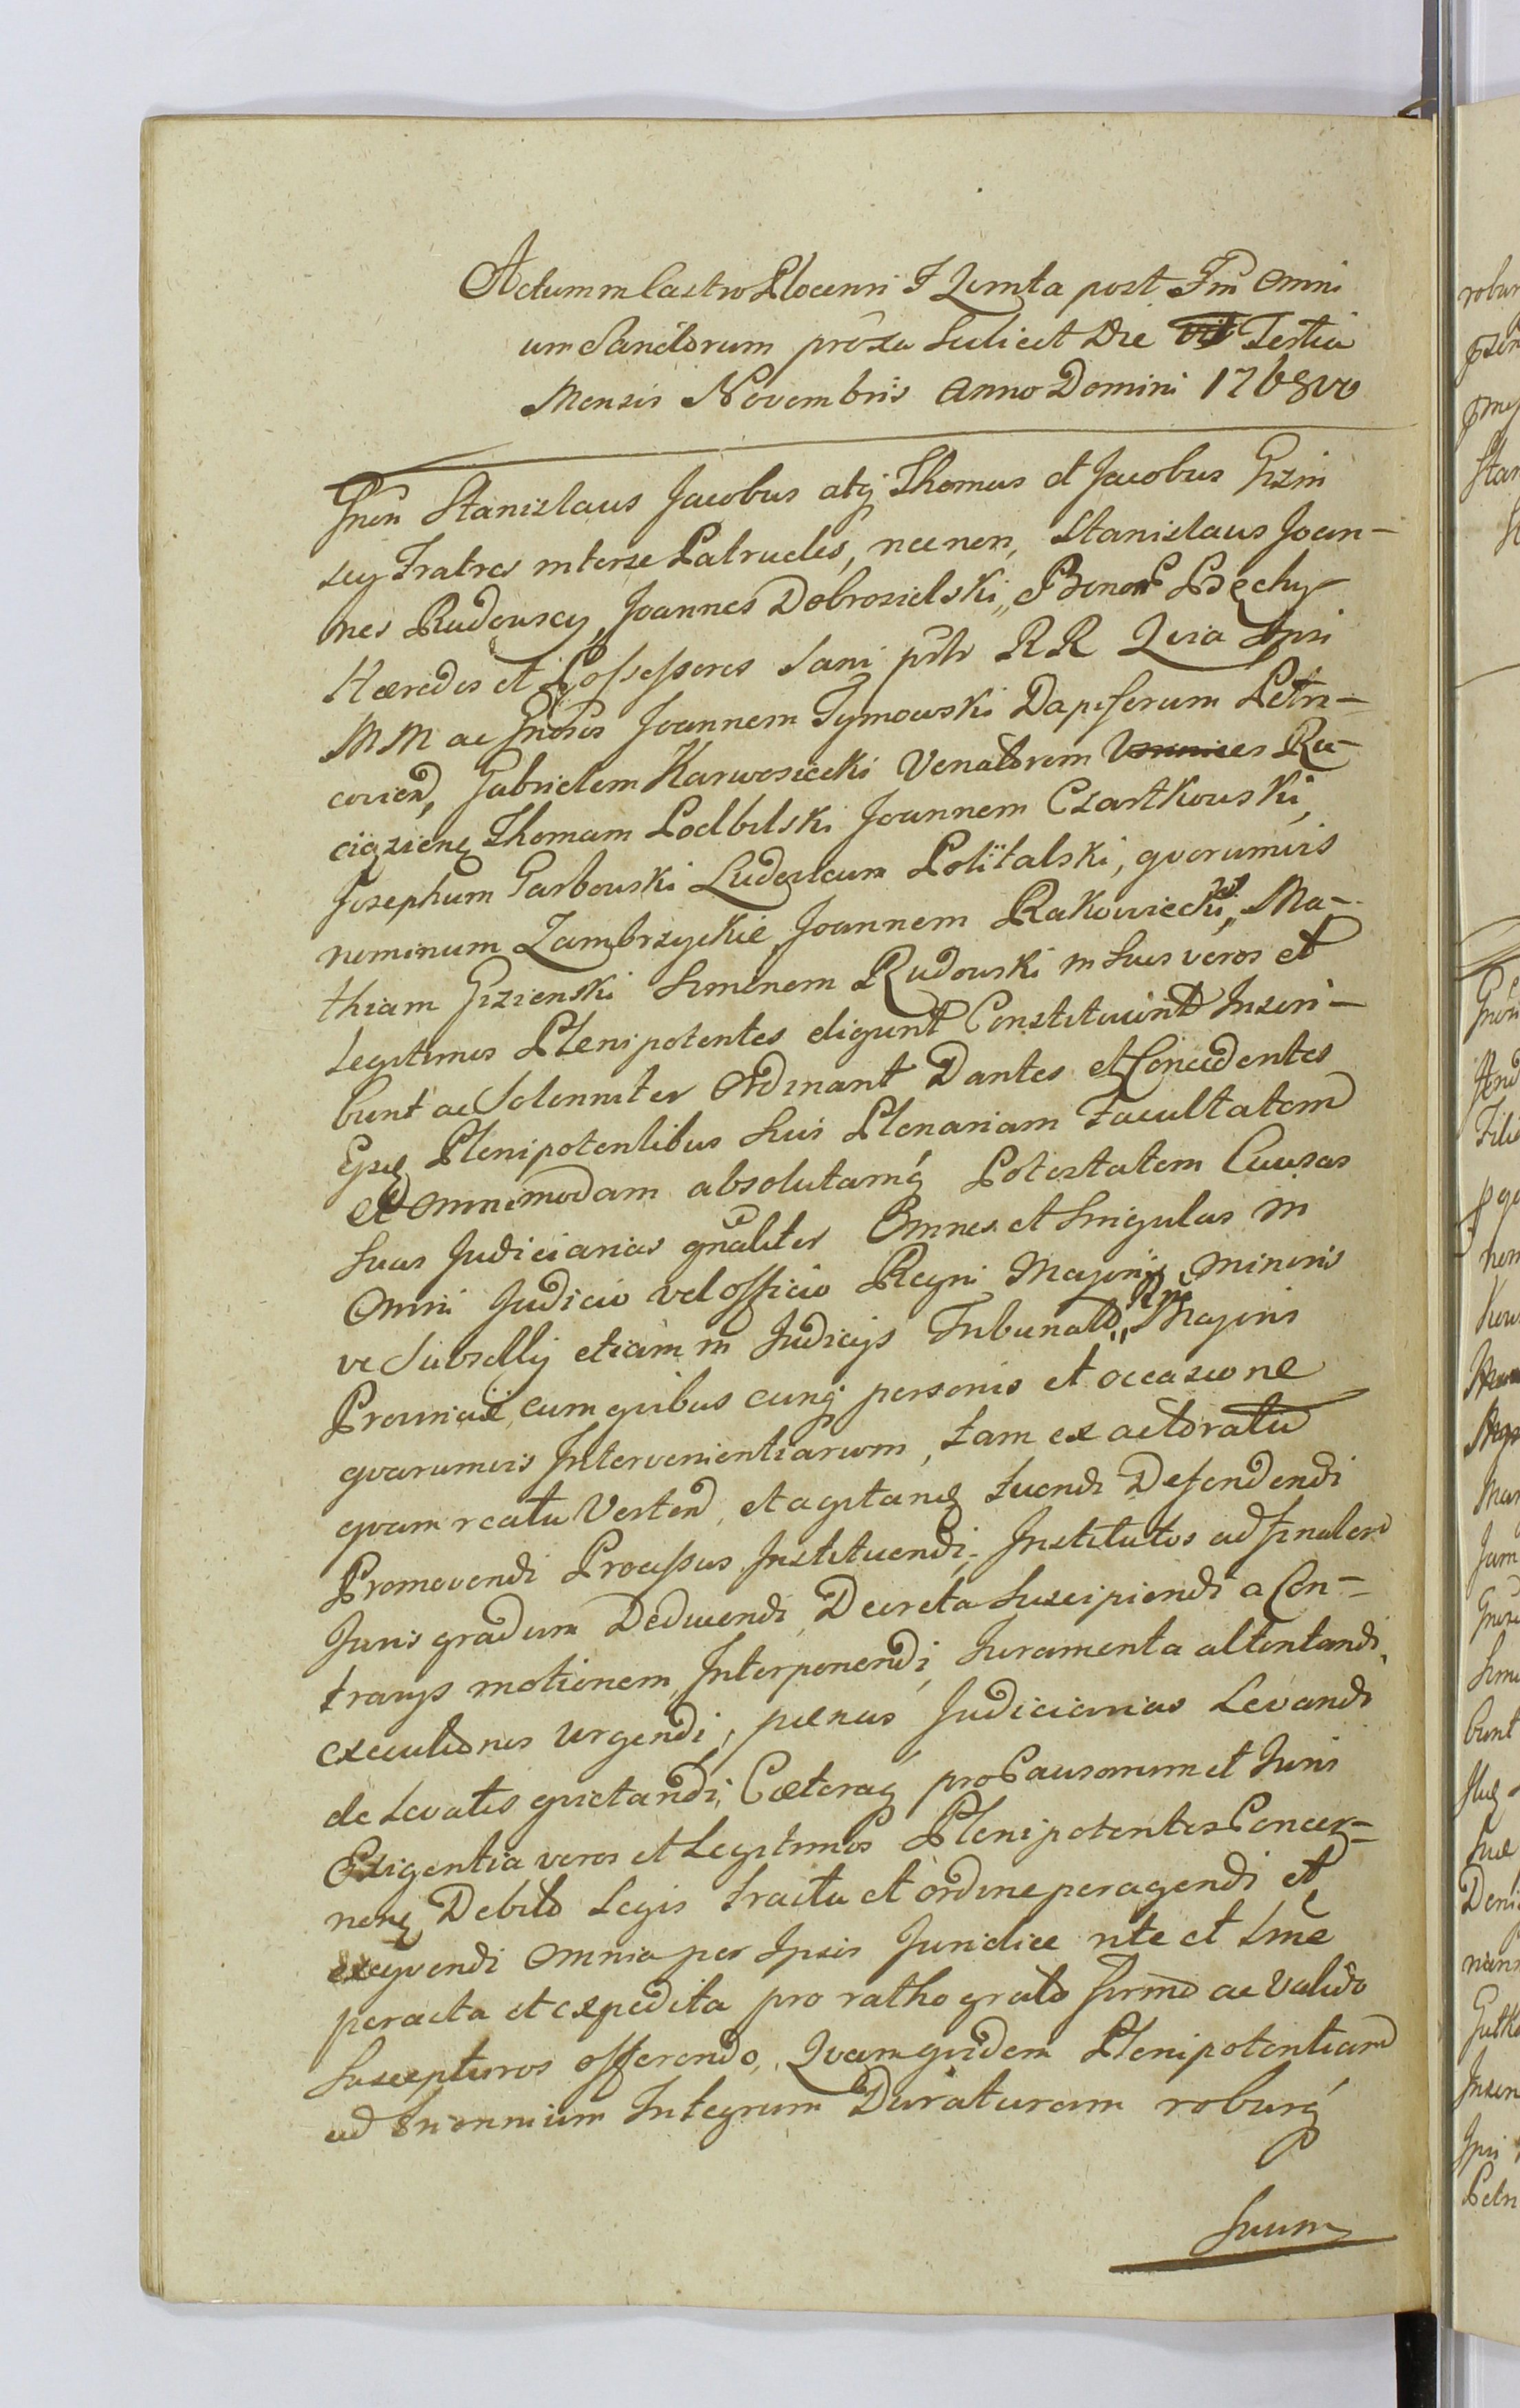 Actum in Castro Plocensi F Qvinta post Fm Omni
um Sanctorum proxa scilicet Die Tertia
Mensis Novembris Anno Domini 1768vo
Gnsi Stanislaus Jacobus atq Thomas et Jacobus Gizin
scy Fratres interse Patrueles, necnon, Stanislaus Joan-
nes Rudowscy, Joannes Dobrosielski, Bonor Psęchy
Hæredes et Possessores Sani pntr RR Qvia Ipsi
MM ac Gnosos Joannem Tymowski Dapiferum Petri-
covien, Gabrielem Karwosiecki Venatorem Ra-
ciązienę Thomam Podbilski Joannem Czartkowski,
Josephum Garbowski Ludovicum Politalski, qvorumvis
nominum Zambrzyckie, Joannem Rakowiecki, Ma-
thiam Gizienski Simonem Rudowski in suos veros et
Legitimos Plenipotentes eligunt Constituunt Inscri-
bunt ac Solenniter Ordinant Dantes et Concedentes
Ejsdę Plenipotentibus suis Plenariam Facultatem
et Omnimodam absolutamq Potestatem Causas
suas Judiciarias gnaliter Omnes et Singulas in
Omni Judicio vel officio Regni Majoris Minoris
ve Subsellij etiam in Judicijs Tribunal Rni Majoris
Provinciæ, cum qvibus cunq personis et occasione
qvarumvis Intervenientiarum, tam ex actoratu
qvam reatu Verten, et agitanę tuendi Defendendi
Promovendi Processus Instituendi, Institutos ad finalem
Juris gradum Deducendi, Decreta Suscipiendi a Con-
trarys motionem, Interponendi, Juramenta attentandi,
executiones Urgendi, pœnas Judiciarias Levandi
de Levatis qvietandi, Cæteraq pro Causarum et Juris
Exigentia veros et Legitimos Plenipotentes Concer-
nenę Debito Legis tractu et ordine peragendi et
exeqvendi Omnia per Ipsis Juridice rite et lme
peracta et expedita pro ratho grato firmo ac valido
Suscepturos offerendo, Qvam qvidem Plenipotentiam
ad Triennium Integrum Duraturam roburq
suum